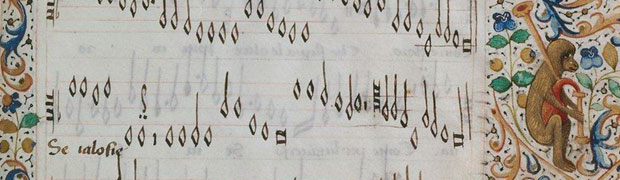 Se ialosie